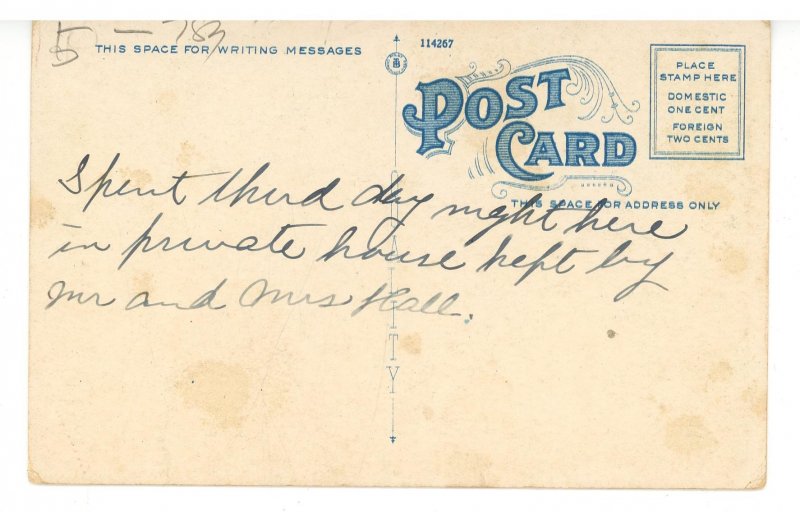 5 —
THIS SPACE FOR WRITING MESSAGES
114267
POST CARD
PLACE
STAMP HERE
DOMESTIC
ONE CENT
FOREIGN
TWO CENTS
THIS SPACE FOR ADDRESS ONLY
Spent third day night here
in private house kept by
Mr and Mrs Hall.